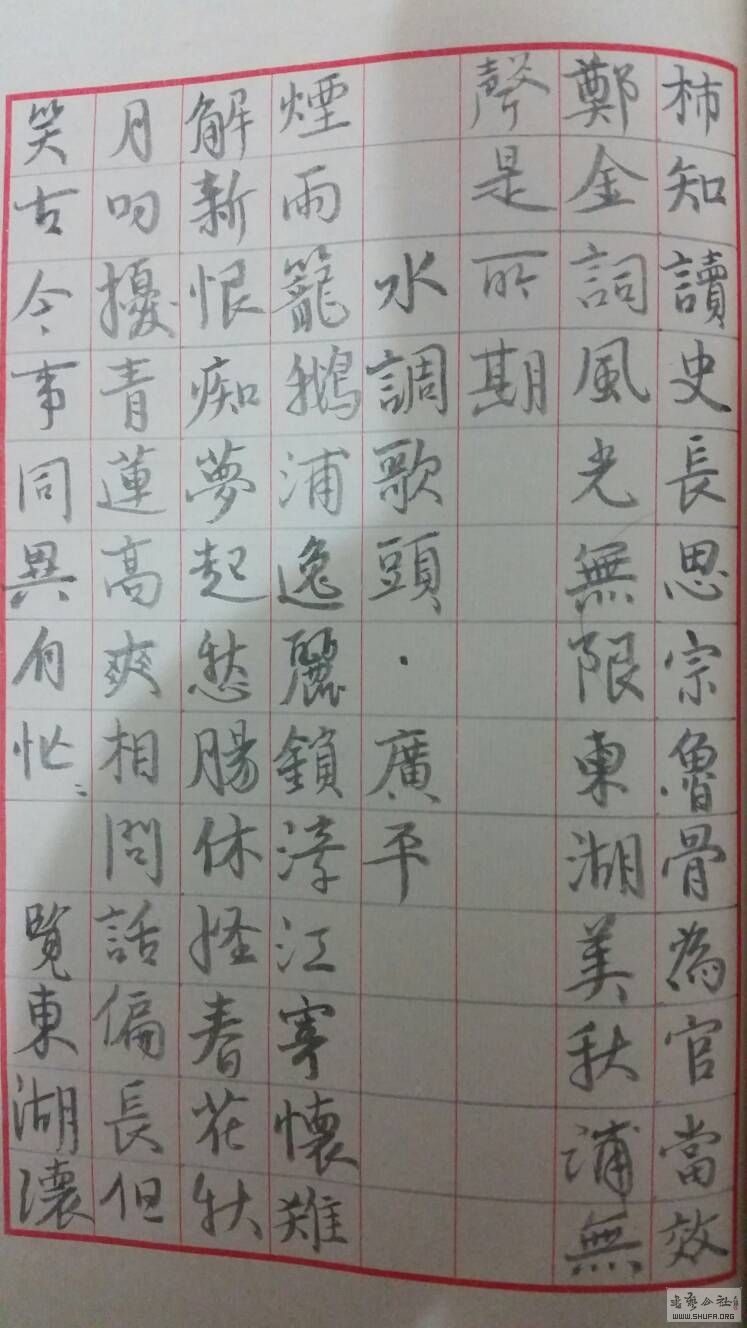 柿知讀史長思宗魯骨為官當效
鄭金詞風光無限東湖美秋浦無
聲是所期
水調歌頭·廣平
煙雨籠鵝浦逸麗鎖江寄懷難
解新恨痴夢起愁腸休怪春花秋
月叨擾青蓮高爽相問話偏長但
笑古今事同異自忙〻 覽東湖
与藝公社
WWW.SHUFA.ORG